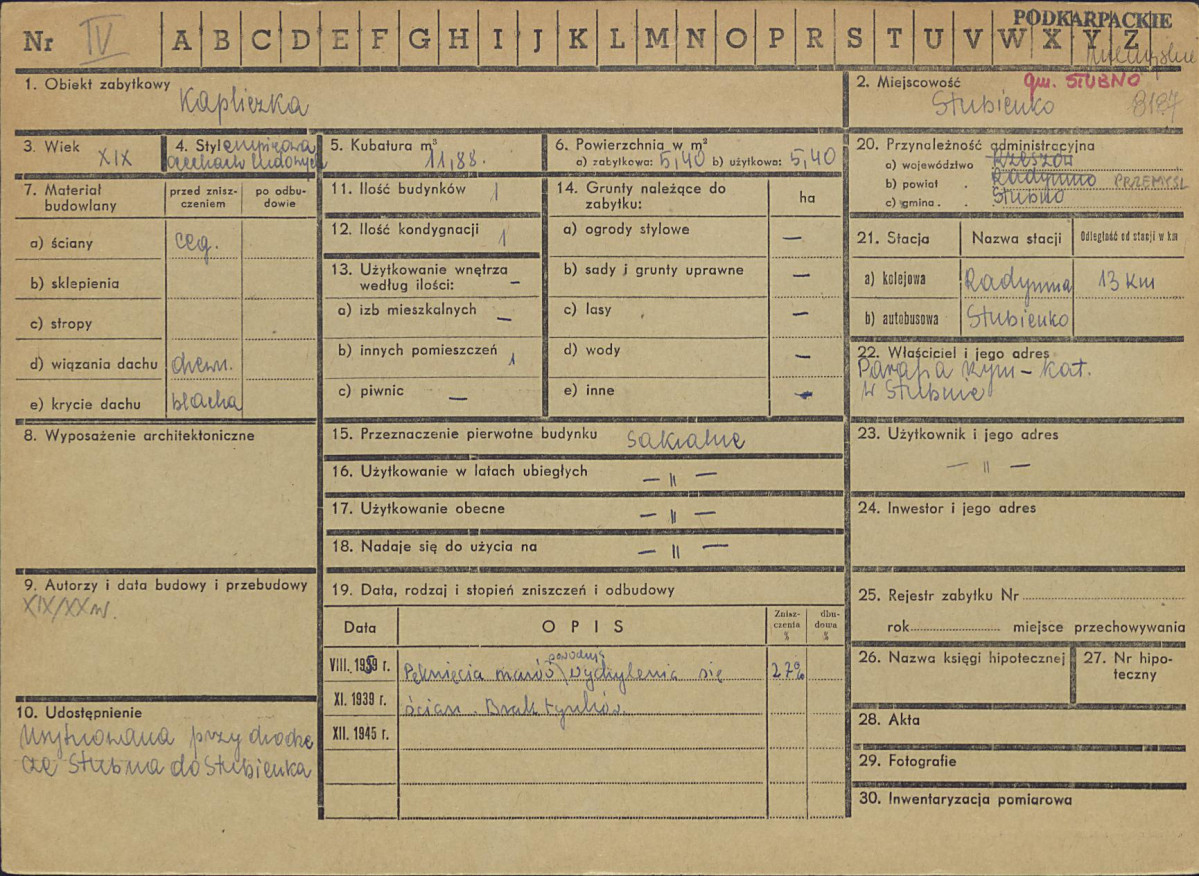 PODKARPACKIE
Nr IV A B C D E F G H I J K L M N O P R S T U V W X Y Z
1. Obiekt zabytkowy
Kapliczka
2. Miejscowość gm. STUBNO
Stubienko 8127
3. Wiek
XIX
4. Styl empirowa
o cechach ludowych
5. Kubatura m³
11,88.
6. Powierzchnia w m²
a) zabytkowa: 5,40 b) użytkowa: 5,40
20. Przynależność administracyjna
a) województwo Rzeszów
b) powiat . Radymno PRZEMYŚL
c) gmina . . Stubno
7. Materiał budowlany
przed zniszczeniem
po odbudowie
a) ściany ceg.
b) sklepienia
c) stropy
d) wiązania dachu drewn.
e) krycie dachu blacha
11. Ilość budynków 1
12. Ilość kondygnacji 1
13. Użytkowanie wnętrza
według ilości: –
a) izb mieszkalnych –
b) innych pomieszczeń 1
c) piwnic –
14. Grunty należące do
zabytku:
ha
a) ogrody stylowe –
b) sady i grunty uprawne –
c) lasy –
d) wody –
e) inne –
21. Stacja
Nazwa stacji
Odległość od stacji w km
a) kolejowa Radymno 13 km
b) autobusowa Stubienko
22. Właściciel i jego adres
Parafia rzym-kat.
w Stubnie
8. Wyposażenie architektoniczne
15. Przeznaczenie pierwotne budynku sakralne
16. Użytkowanie w latach ubiegłych – " –
17. Użytkowanie obecne – " –
18. Nadaje się do użycia na – " –
23. Użytkownik i jego adres
– " –
24. Inwestor i jego adres
9. Autorzy i data budowy i przebudowy
XIX/XX w.
19. Data, rodzaj i stopień zniszczeń i odbudowy
Data
OPIS
Znisz-
czenia
%
dbu-
dowa
%
VIII. 1959 r. Pęknięcia murów powodują wychylenia się 27%
XI. 1939 r. ścian. Brak tynków.
XII. 1945 r.
25. Rejestr zabytku Nr
rok miejsce przechowywania
26. Nazwa księgi hipotecznej
27. Nr hipo-
teczny
10. Udostępnienie
Usytuowana przy drodze
ze Stubna do Stubienka
28. Akta
29. Fotografie
30. Inwentaryzacja pomiarowa